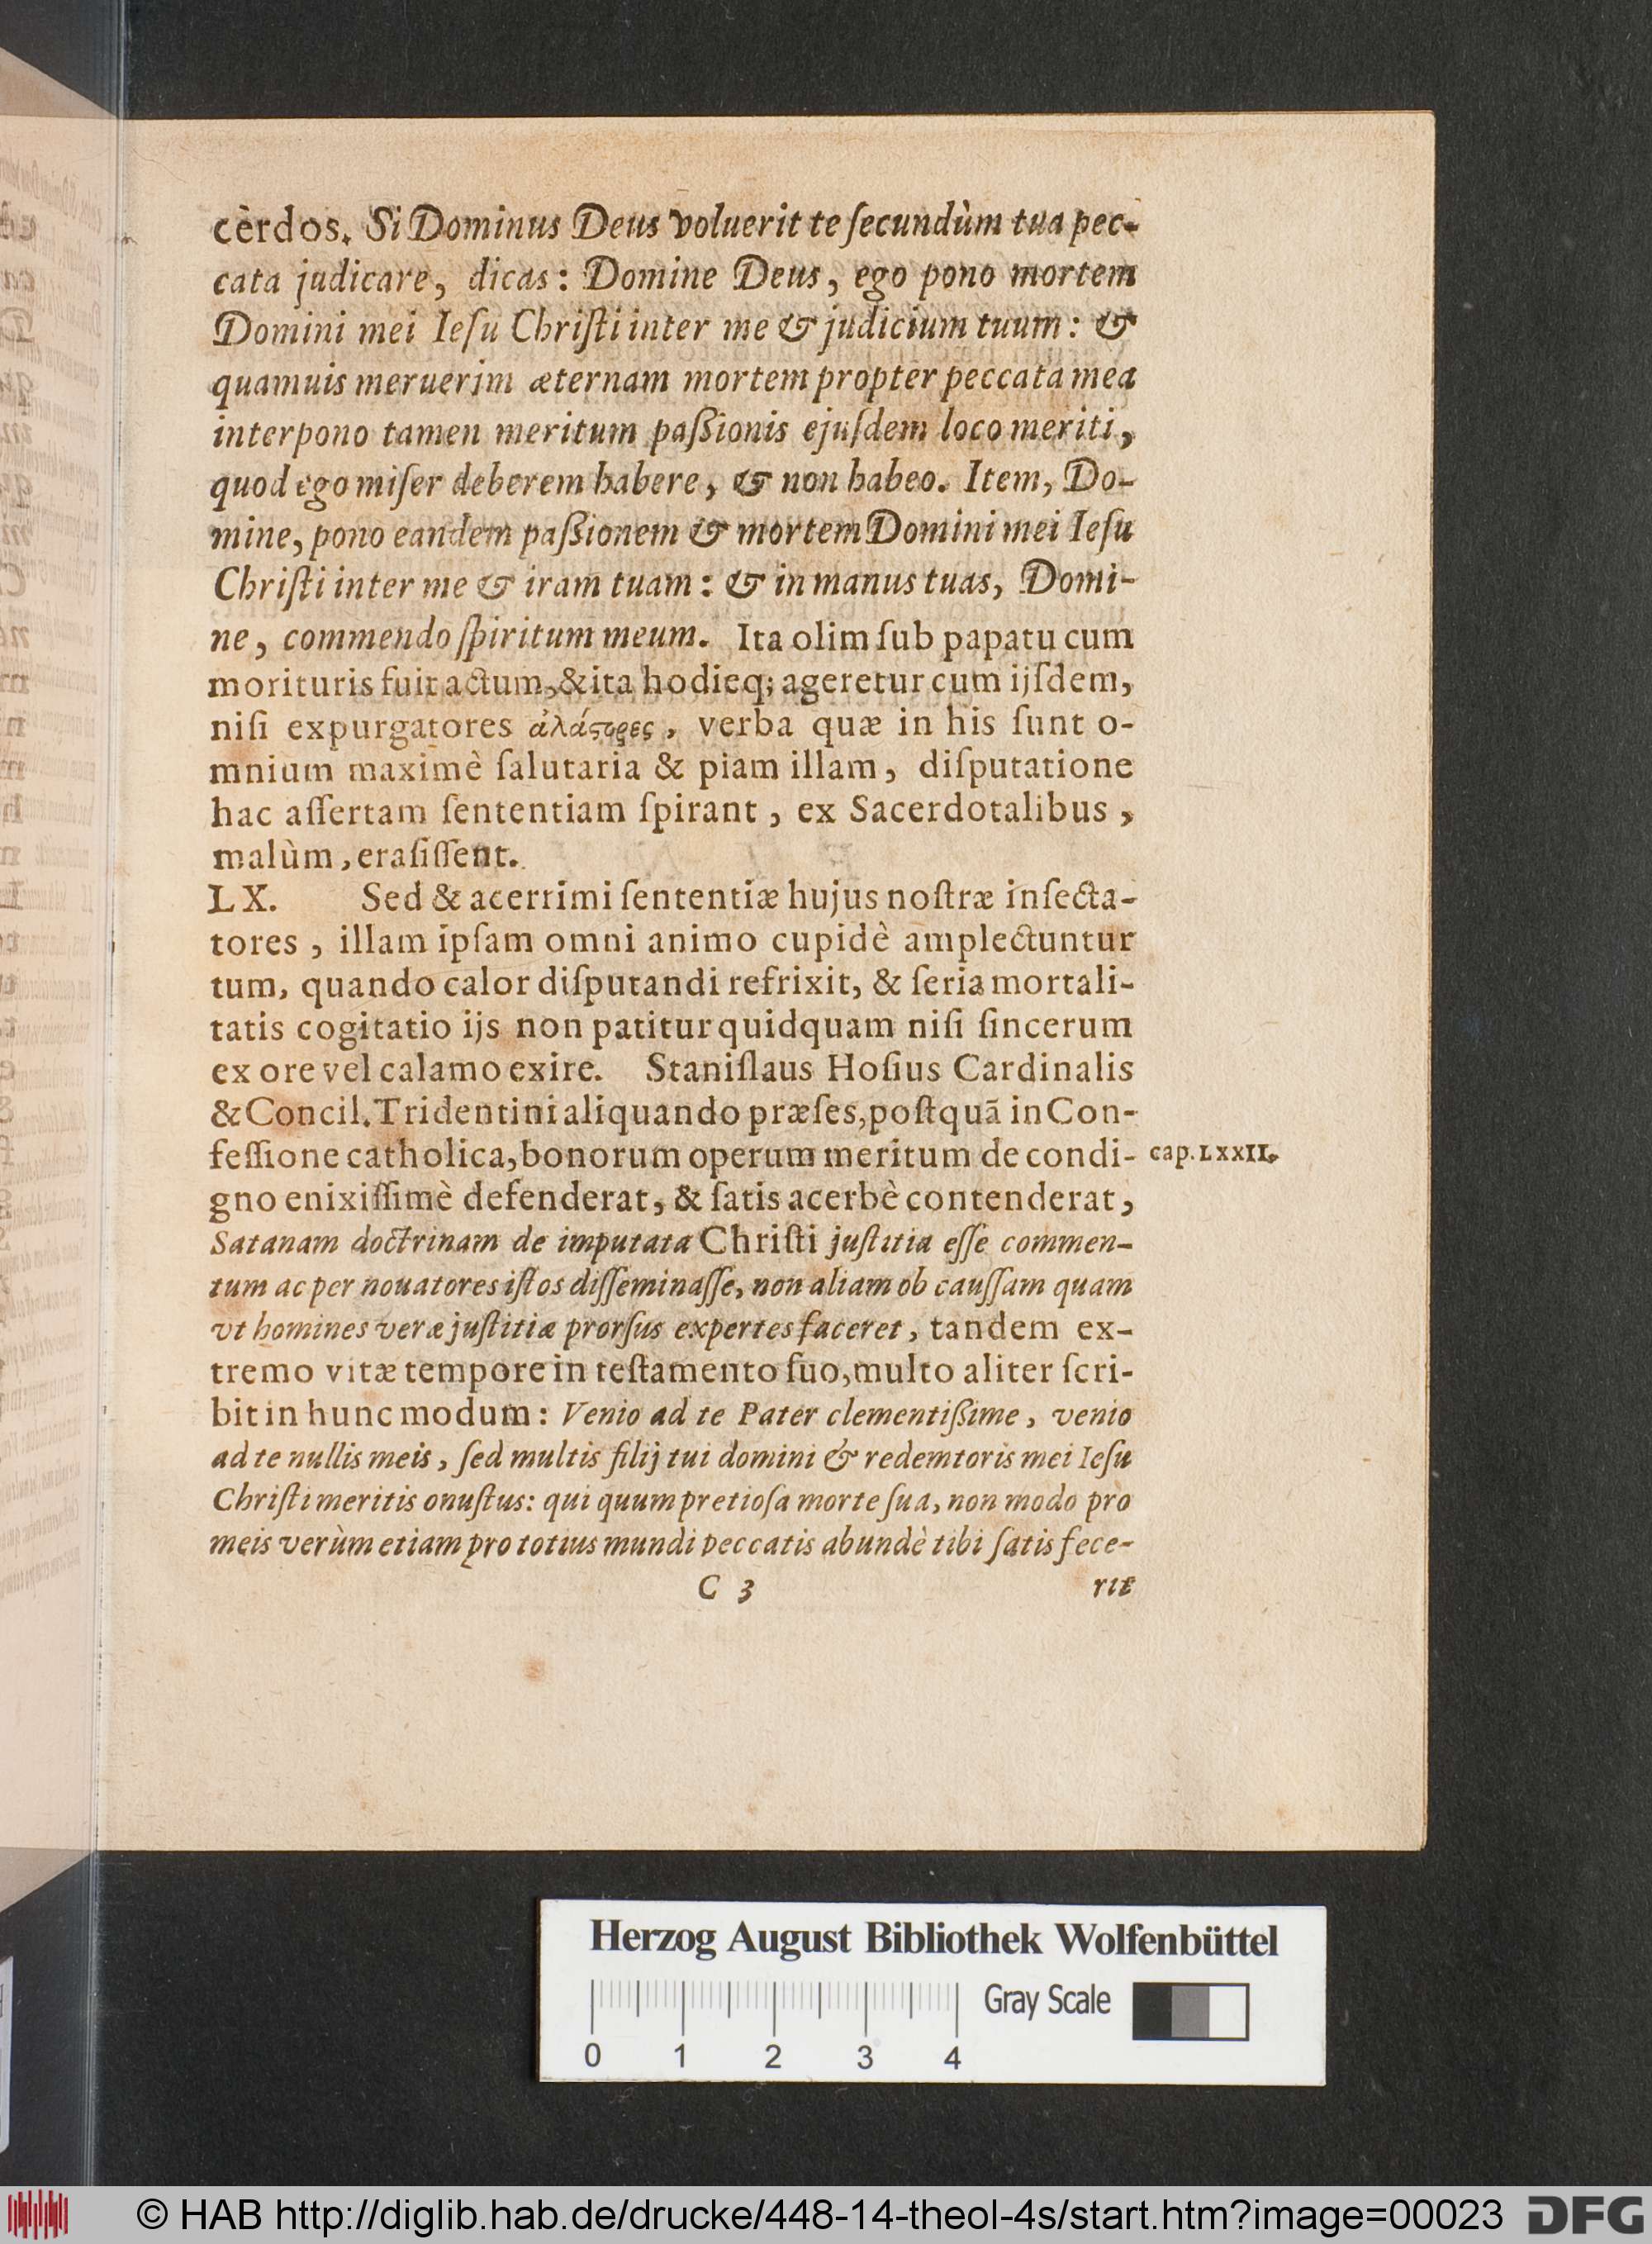 cèrdos. Si Dominus Deus voluerit te ſecundùm tua pec-
cata judicare, dicas: Domine Deus, ego pono mortem
Domini mei Ieſu Chriſti inter me & judicium tuum: &
quamuis meruerim æternam mortem propter peccata mea
interpono tamen meritum paſſionis ejuſdem loco meriti,
quod ego miſer deberem habere, & non habeo. Item, Do-
mine, pono eandem paſſionem & mortem Domini mei Ieſu
Chriſti inter me & iram tuam: & in manus tuas, Domi-
ne, commendo ſpiritum meum. Ita olim ſub papatu cum
morituris fuit actum, & ita hodieq; ageretur cum ijſdem,
niſi expurgatores ἀλάστορες, verba quæ in his ſunt o-
mnium maximè ſalutaria & piam illam, diſputatione
hac aſſertam ſententiam ſpirant, ex Sacerdotalibus,
malùm, eraſiſſent.
LX. Sed & acerrimi ſententiæ hujus noſtræ inſecta-
tores, illam ipſam omni animo cupidè amplectuntur
tum, quando calor diſputandi refrixit, & ſeria mortali-
tatis cogitatio ijs non patitur quidquam niſi ſincerum
ex ore vel calamo exire. Staniſlaus Hoſius Cardinalis
& Concil. Tridentini aliquando præſes, poſtquã in Con-
feſſione catholica, bonorum operum meritum de condi- cap. LXXII.
gno enixiſſimè defenderat, & ſatis acerbè contenderat,
Satanam doctrinam de imputata Chriſti juſtitia eſſe commen-
tum ac per nouatores iſtos diſſeminaſſe, non aliam ob cauſſam quam
vt homines veræ juſtitiæ prorſus expertes faceret, tandem ex-
tremo vitæ tempore in teſtamento ſuo, multo aliter ſcri-
bit in hunc modum: Venio ad te Pater clementiſſime, venio
ad te nullis meis, ſed multis filij tui domini & redemtoris mei Ieſu
Chriſti meritis onuſtus: qui quum pretioſa morte ſua, non modo pro
meis verùm etiam pro totius mundi peccatis abundè tibi ſatis fece-
C 3 rit
Herzog August Bibliothek Wolfenbüttel
Gray Scale
0 1 2 3 4
© HAB http://diglib.hab.de/drucke/448-14-theol-4s/start.htm?image=00023 DFG